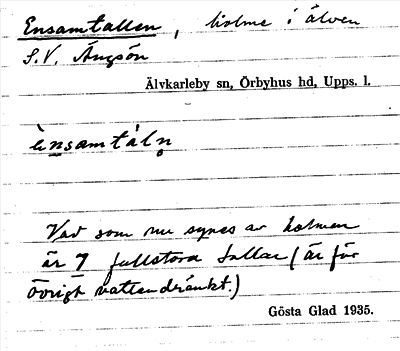 Ensamtallen, holme i älven
S.V. Ängsön
Älvkarleby sn, Örbyhus hd, Upps. l.
ènsamtáln̥
Vad som nu synes av holmen
är 7 fullstora tallar (är för
övrigt vattendränkt.)
Gösta Glad 1935.